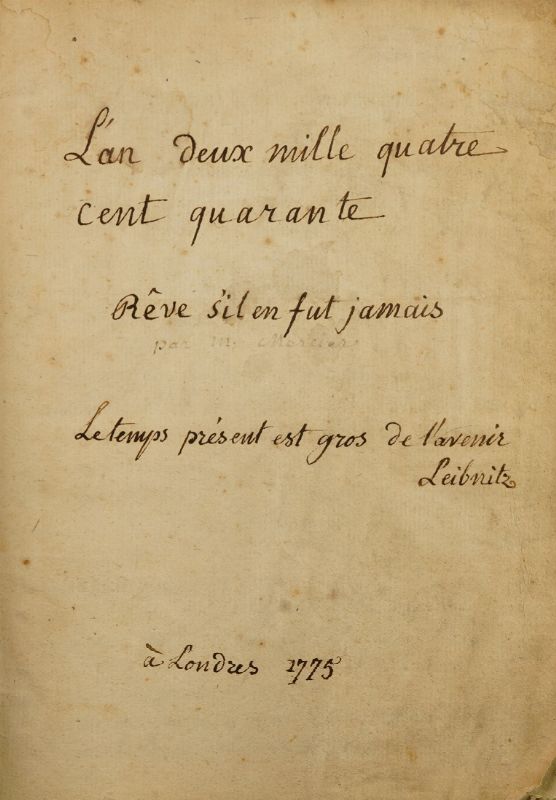 L'an deux mille quatre
cent quarante
Rêve s'il en fut jamais
par M. Mercier
Le temps présent est gros de l'avenir
Leibnitz
à Londres 1775